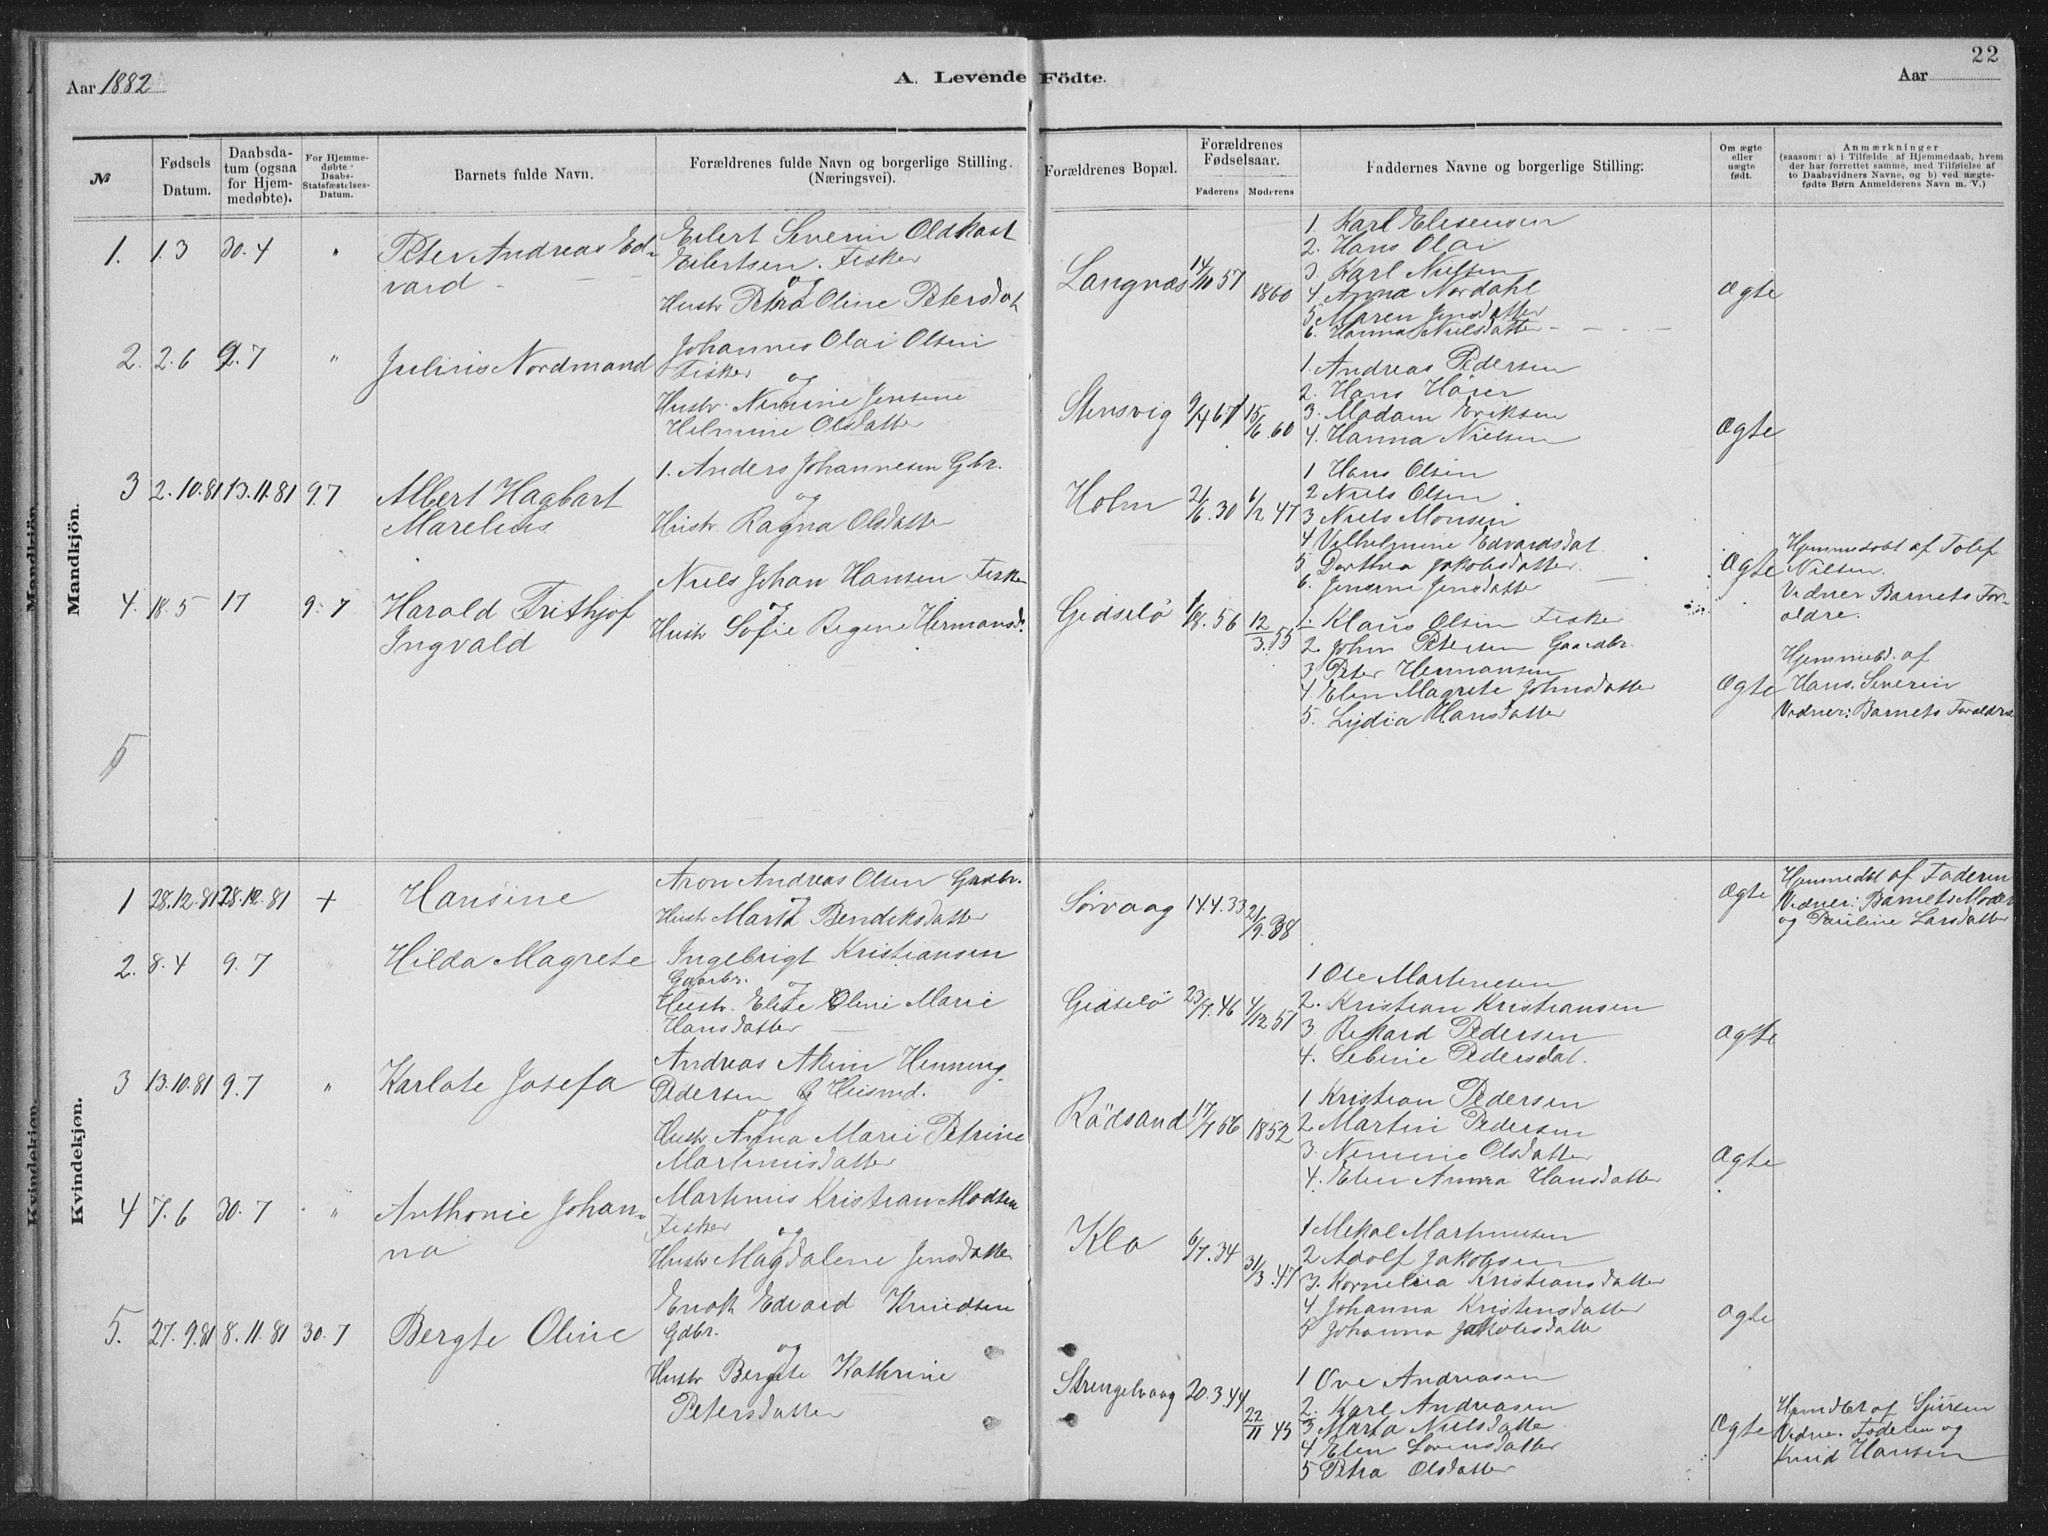 22
Aar 1882
A. Levende Födte.
Aar
№
Fødsels Datum.
Daabsdatum (ogsaa for Hjemmedøbte).
For Hjemmedøbte Daabs-Statsfæstelses-Datum.
Barnets fulde Navn.
Forældrenes fulde Navn og borgerlige Stilling. (Næringsvei).
Forældrenes Bopæl.
Forældrenes Fødselsaar.
Faderens
Moderens
Faddernes Navne og borgerlige Stilling.
Om ægte eller uægte født.
Anmærkninger
(saasom: a) i Tilfælde af Hjemmedaab, hvem der har forrettet samme, med Tilføielse af to Daabsvidners Navne, og b) ved uægtefødte Børn Anmelderens Navn m. V.)
Mandkjön.
1. 1.3 30.4 "
Peter Andreas Ed-
vard -
Eilert Severin Oldkast
Eilertsen. Fisker
og
Hustr Petra Oline Petersdat
Langnæs 14/10 57 1860
1. Karl Elisensen
2. Hans Olai
3. Karl Nielsen
4. Anna Nordahl
5. Maren Jensdatter
6. Hanna Nielsdatter
Ægte
2. 2.6 9.7 "
Julius Nordmand
Johannes Olai Olsen
Fisker og
Hustr. Nemine Jensine
Helmine Olsdatter
Stensvig 9/4 67 15/6 60
1. Andreas Pedersen
2. Hans Höier
3. Madam Eriksen
4. Hanna Nielsen
Ægte
3 2.10.81 13.11.81 9.7
Albert Hagbart
Marelius
1. Anders Johannesen Gbr.
og
Hustr Ragna Olsdatter
Holm 21/6.30 6/12 47
1 Hans Olsen
2 Niels Olsen
3 Niels Monsen
4 Vilhelmine Edvardsdat
5 Dorthea Jakobsdatter
6. Jensine Jensdatter
Ægte
Hjemmedöbt af Tolef
Nilsen.
Vidner Barnets For-
ældre.
4. 18.5 17 9.7
Harald Frithjof
Ingvald
Niels Johan Hansen Fisker
og
Hustr Sofie Regine Hermansd.
Gidselö 1/8.56 12/3.55
1. Klaus Olsen Fisker
2. John Petersen Gaardbr.
3 Peter Hermansen
4 Elen Magrete Johnsdatter
5. Lydia Hansdatter
Ægte
Hjemmed. af
Hans Severin
Vidner: Barnets Forældre
5
Kvindekjøn.
1 28.12.81 28.12.81 +
Hansine
Aron Andreas Olsen Gaardbr.
og
Hustr Marta Bendiksdatter
Sörvaag 14.4.33 21/9.38
Ægte
Hjemmedöbt af Faderen
Vidner: Barnets Moder
og Pauline Larsdatter
2. 8.4 9.7 "
Hilda Magrete
Ingebrigt Kristiansen
Gaarbr. og
Hustr. Elise Oline Marie
Hansdatter
Gidselö 23/7.46 4/12 51
1 Ole Martinesen
2. Kristian Kristiansen
3 Rikard Pedersen
4. Sebine Pedersdat.
Ægte
3 13.10.81 9.7 "
Karlote Josefa
Andreas Akim Henning
Pedersen Husmd.
og
Hustr Anna Marie Petrine
Martinusdatter
Rödsand 17/7 56 1852
1 Kristian Pedersen
2 Martin Pedersen
3. Nemine Olsdatter
4. Elen Anna Hansdatter
Ægte
4 7.6 30.7 "
Anthonie Johan-
na
Martinus Kristian Madsen
Fisker og
Hustr Magdalene Jensdatter
Klo 6/7.34 31/3.47
1 Mekal Martinussen
2 Adolf Jakobsen
3. Kornelia Kristiansdatter
4 Johanna Kristensdatter
5 Johanna Jakobsdatter
Ægte
5. 27.9.81 8.11.81 30.7
Bergte Oline
Enok Edvard Knudsen
Gdbr.
og
Hustr Bergete Kathrine
Petersdatter
Strengelvaag 20.3.44 22/11 43
1 Ove Andreasen
2. Karl Andreasen
3 Marta Nielsdatter
4 Elen Lorensdatter
5 Petra Olsdatter
Ægte
Hjemdbt af Sjursen
Vidne. Faderen og
Knud Hansen
Mandkjön.
Kvindekjøn.